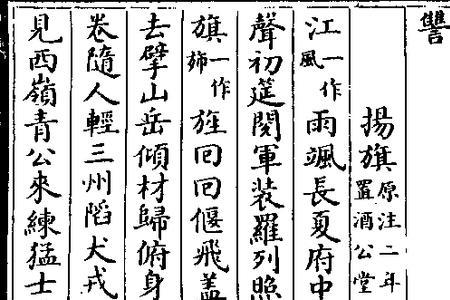 讐
揚旗原注二年
置酒公堂
江一作風雨颯長夏府中
聲初筵閱軍裝羅列照
旗一作斾旌回回偃飛蓋
去擘山岳傾材歸俯身
卷隨人輕三州陷犬戎
見西嶺青公來練猛士